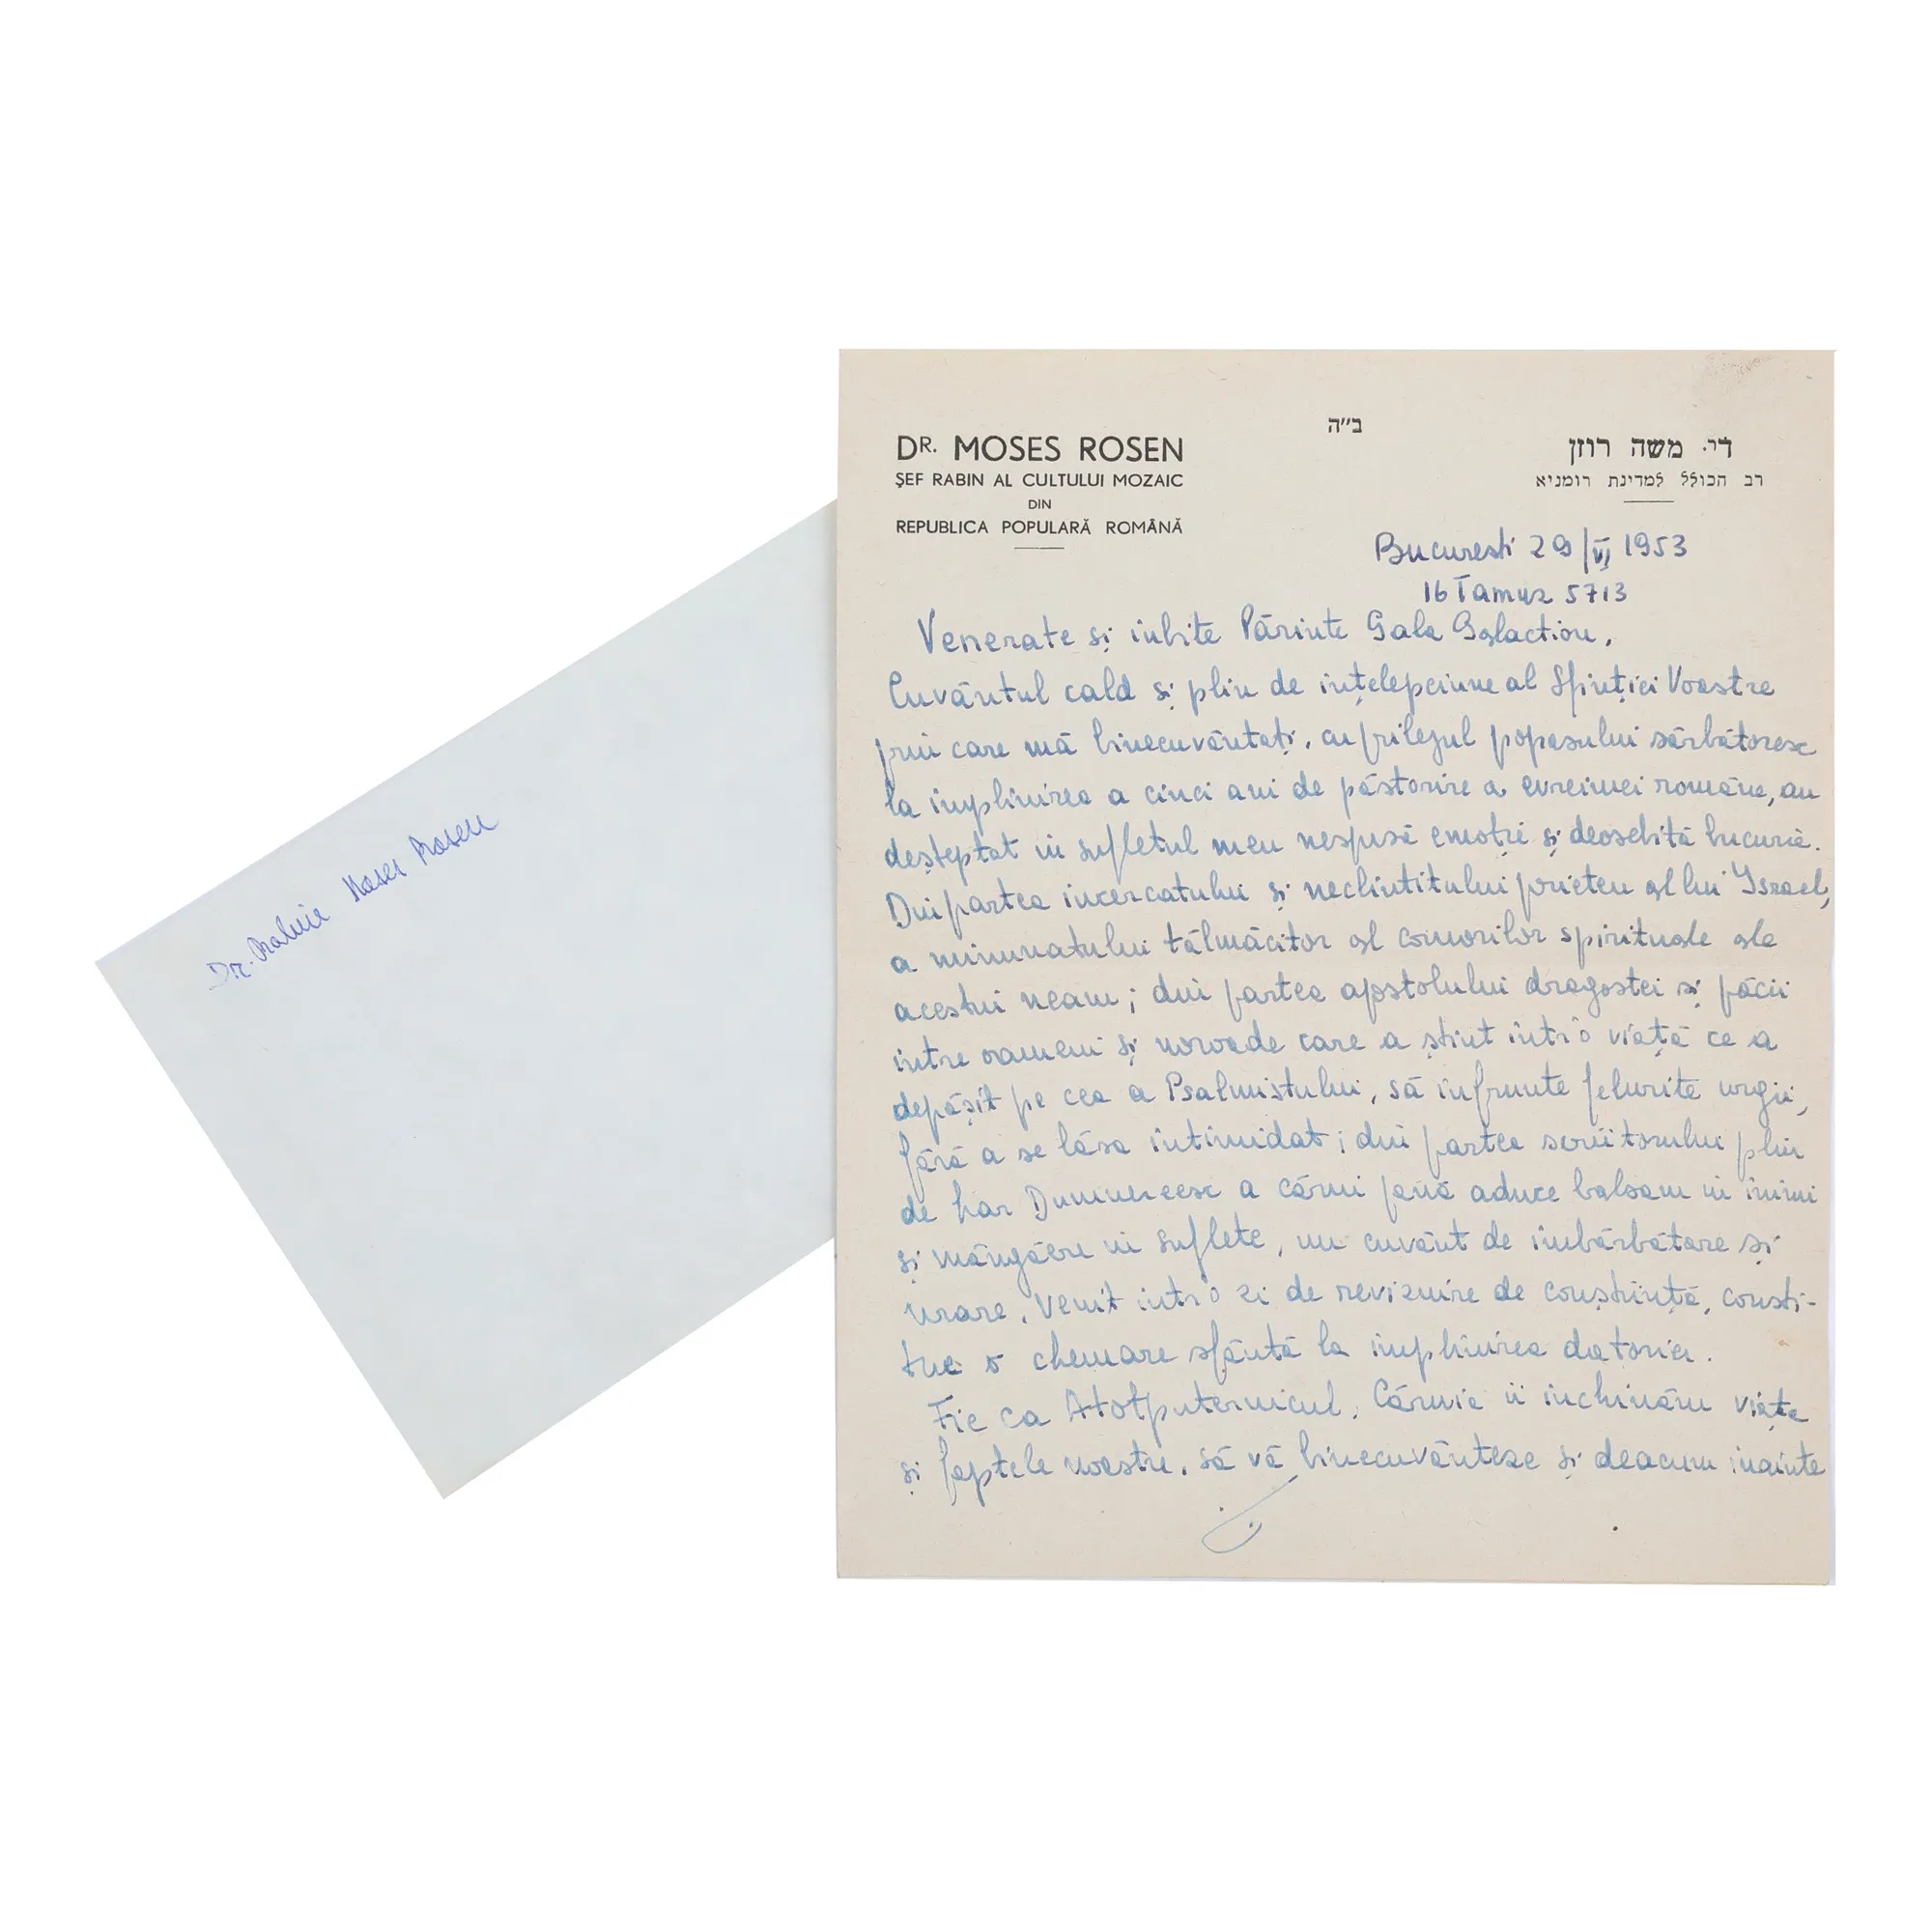 Dr. Rabin Moses Rosen
ב״ה
DR. MOSES ROSEN
ŞEF RABIN AL CULTULUI MOZAIC
DIN
REPUBLICA POPULARĂ ROMÂNĂ
די. משה רוזן
רב הכולל למדינת רומניא
Bucuresti 29/VI 1953
16 Tamuz 5713
Venerate și iubite Părinte Gala Galaction,
Cuvântul cald și plin de ințelepciune al Sfinției Voastre
prin care mă binecuvântați, cu prilejul popasului sărbătoresc
la implinirea a cinci ani de păstorire a evreimei române, au
deșteptat in sufletul meu nespusă emoție și deosebită bucurie.
Din partea incercatului și neclintitului prieten al lui Israel,
a minunatului tălmăcitor al comorilor spirituale ale
acestui neam; din partea apostolului dragostei și păcii
intre oameni și noroade care a știut intr'o viață ce a
depășit pe cea a Psalmistului, să infrunte felurite urgii,
fără a se lăsa intimidat; din partea scriitorului plin
de har Dumnezeesc a cărui pană aduce balsam in inimi
și mângâere in suflete, un cuvânt de imbărbătare și
urare, venit intr'o zi de revizuire de conștiință, consti-
tue o chemare sfântă la implinirea datoriei.
Fie ca Atotputernicul, Căruia ii inchinăm viața
și faptele noastre, să vă binecuvânteze și deacum inainte